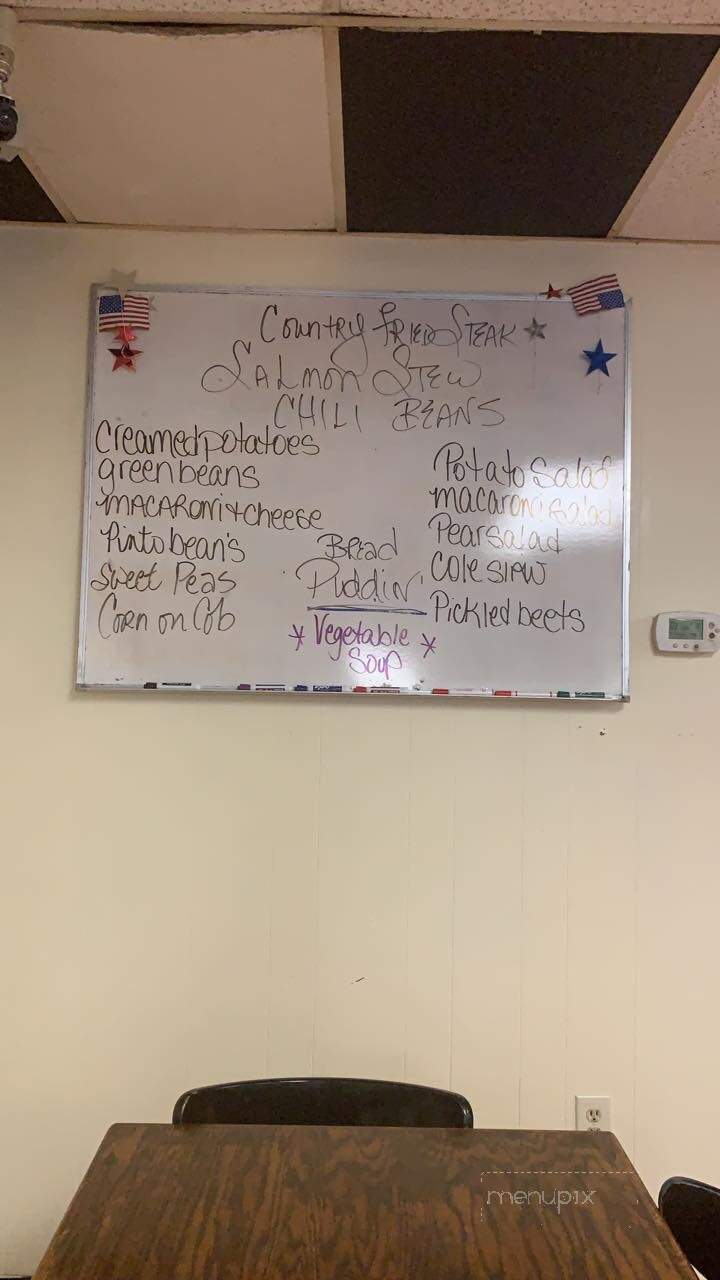 Country Fried Steak
Salmon Stew
CHILI BEANS
Creamed potatoes
green beans
Macaroni + cheese
Pinto bean's
Sweet Peas
Corn on Cob
Bread
Puddin'
* Vegetable *
Soup
Potato Salad
macaroni Salad
Pear salad
Cole slaw
Pickled beets
menupix